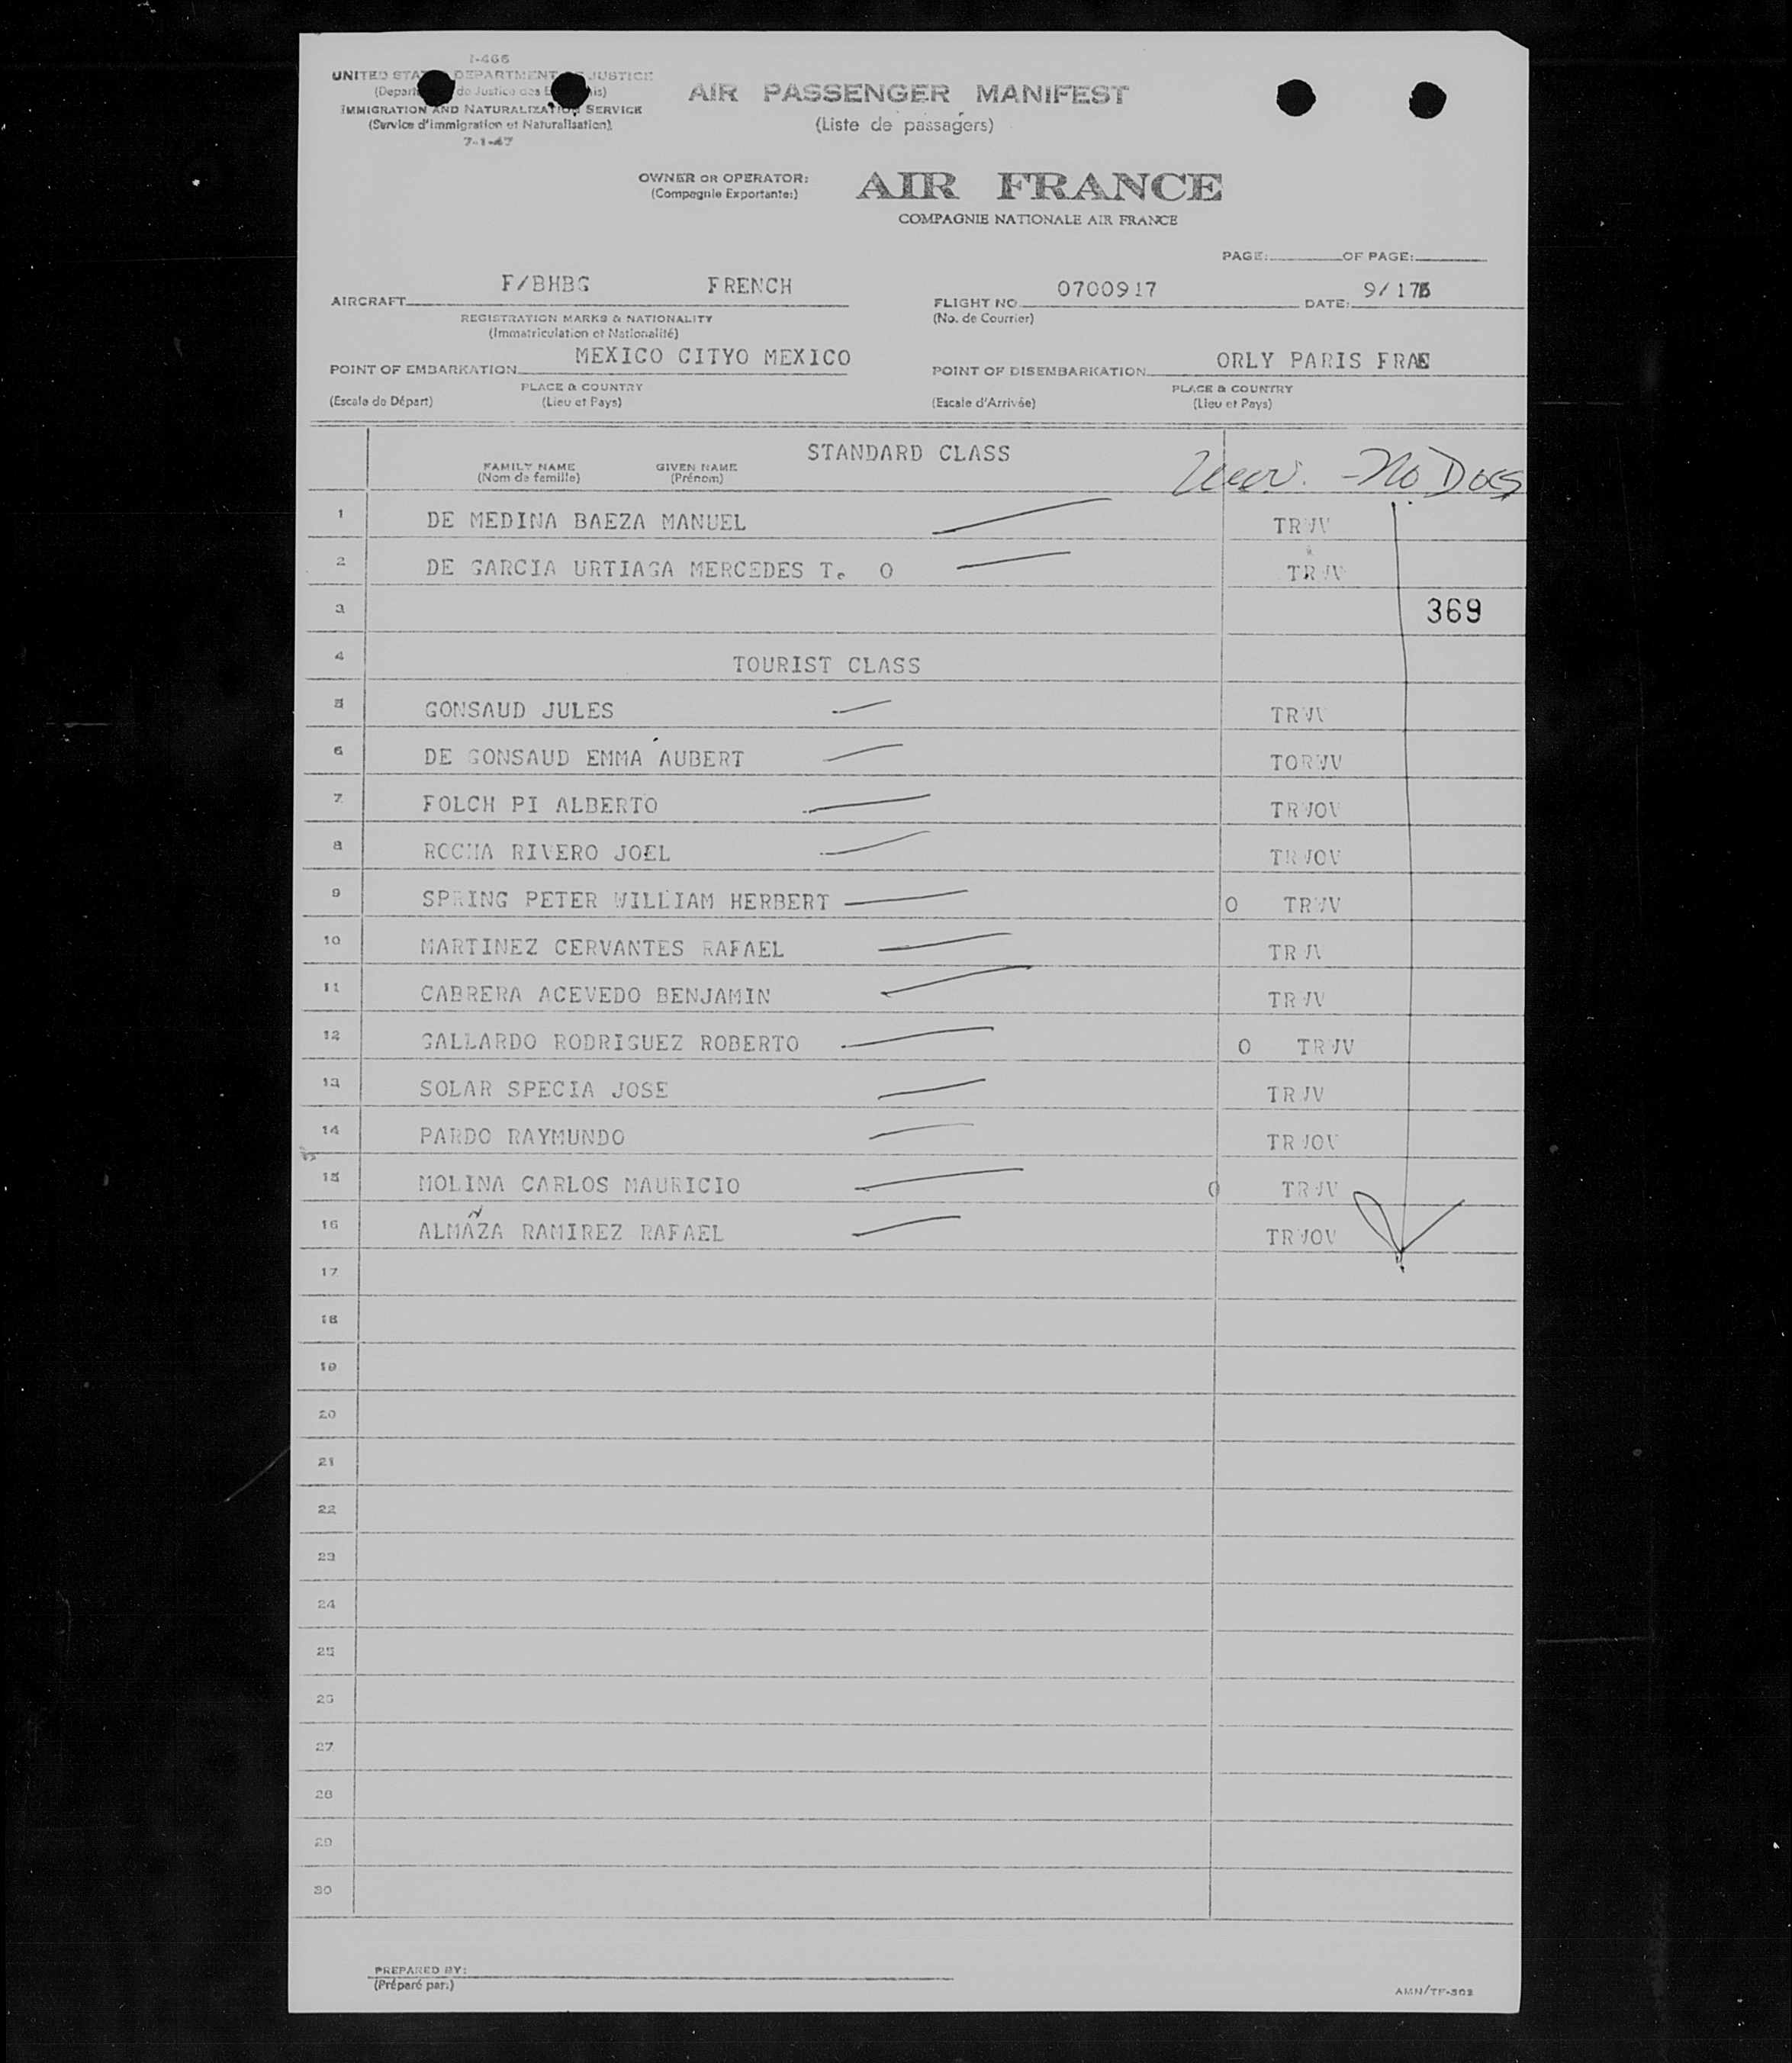 I-466
UNITED STA DEPARTMENT JUSTICE
(Depart de Justice des E is)
IMMIGRATION AND NATURALIZATION SERVICE
(Service d'Immigration et Naturalisation)
7-1-47
AIR PASSENGER MANIFEST
(Liste de passagers)
OWNER OR OPERATOR:
(Compagnie Exportante:)
AIR FRANCE
COMPAGNIE NATIONALE AIR FRANCE
PAGE: OF PAGE:
AIRCRAFT F/BHBG FRENCH
REGISTRATION MARKS & NATIONALITY
(Immatriculation et Nationalité)
FLIGHT NO 0700917 DATE: 9/17
(No. de Courrier)
POINT OF EMBARKATION MEXICO CITYO MEXICO
PLACE & COUNTRY
(Escale de Départ) (Lieu et Pays)
POINT OF DISEMBARKATION ORLY PARIS FRAE
PLACE & COUNTRY
(Escale d'Arrivée) (Lieu et Pays)
STANDARD CLASS
FAMILY NAME GIVEN NAME
(Nom de famille) (Prénom)
- No Docs
1 DE MEDINA BAEZA MANUEL TRWV
2 DE GARCIA URTIAGA MERCEDES T. O TRWV
3 369
4 TOURIST CLASS
5 GONSAUD JULES TRWV
6 DE GONSAUD EMMA AUBERT TORWV
7 FOLCH PI ALBERTO TRWOV
8 ROCHA RIVERO JOEL TRWOV
9 SPRING PETER WILLIAM HERBERT O TRWV
10 MARTINEZ CERVANTES RAFAEL TRWV
11 CABRERA ACEVEDO BENJAMIN TRWV
12 GALLARDO RODRIGUEZ ROBERTO O TRWV
13 SOLAR SPECIA JOSE TRWV
14 PARDO RAYMUNDO TRWOV
15 MOLINA CARLOS MAURICIO O TRWV
16 ALMAZA RAMIREZ RAFAEL TRWOV
17
18
19
20
21
22
23
24
25
26
27
28
29
30
PREPARED BY:
(Préparé par:)
AMN/TF-302